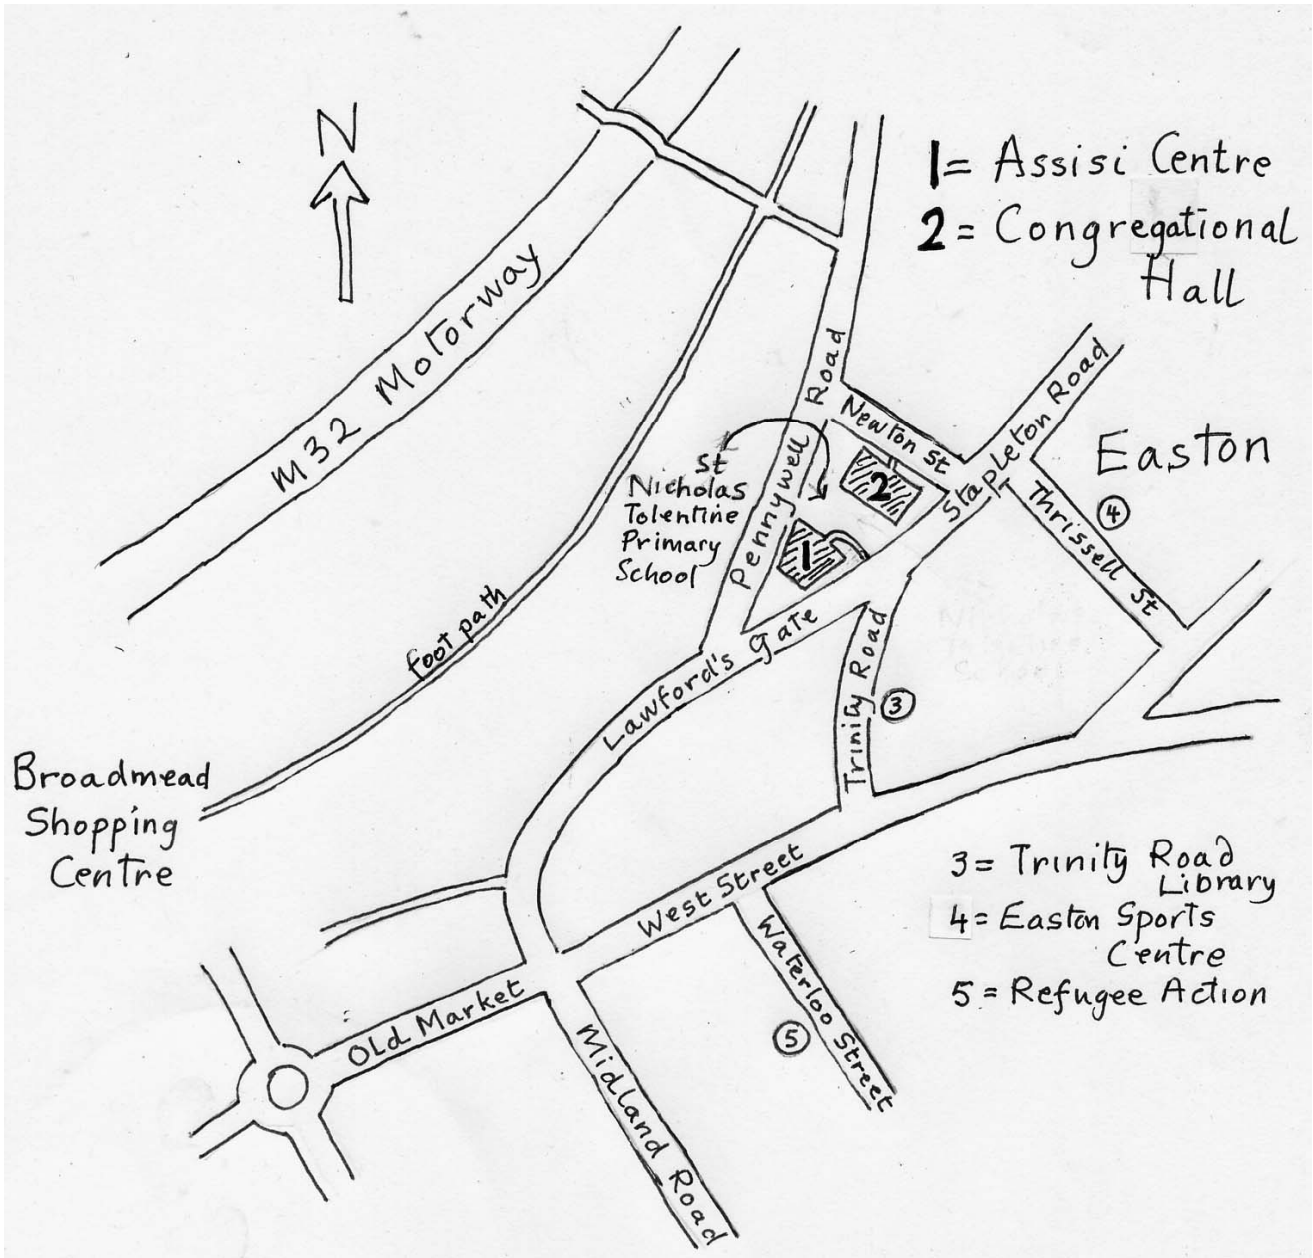 N
1 = Assisi Centre
2 = Congregational
Hall
M32 Motorway
Pennywell Road
Newton St
Stapleton Road
Easton
St
Nicholas
Tolentine
Primary
School
2
1
4
Thrissell St
Foot path
Lawford's Gate
Trinity Road
3
Broadmead
Shopping
Centre
West Street
3 = Trinity Road
Library
4 = Easton Sports
Centre
5 = Refugee Action
Old Market
Waterloo Street
5
Midland Road